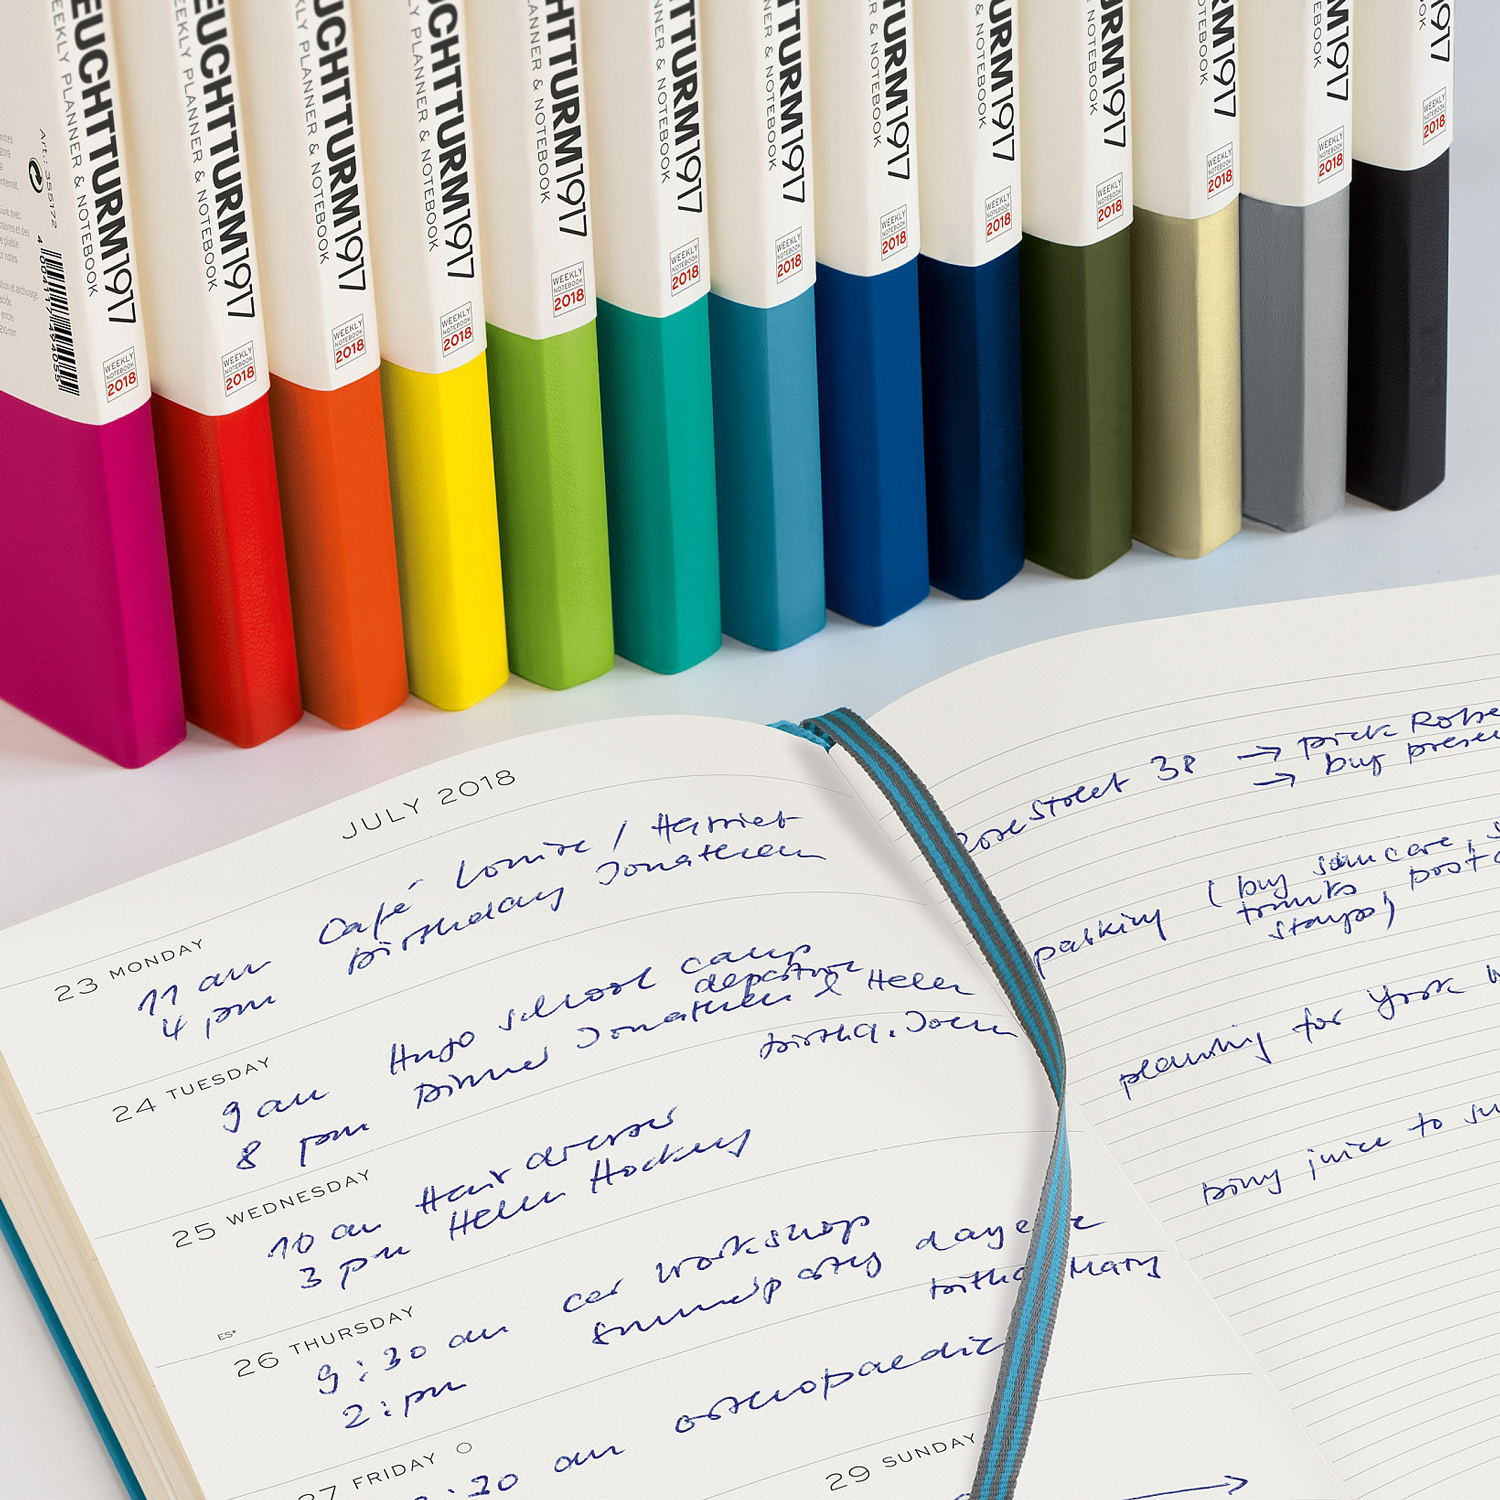 EUCHTTURM1917
EEKLY PLANNER & NOTEBOOK
Art.: 355172
WEEKLY
NOTEBOOK
2018
EUCHTTURM1917
EEKLY PLANNER & NOTEBOOK
WEEKLY
NOTEBOOK
2018
UCHTTURM1917
KLY PLANNER & NOTEBOOK
WEEKLY
NOTEBOOK
2018
UCHTTURM1917
LY PLANNER & NOTEBOOK
WEEKLY
NOTEBOOK
2018
CHTTURM1917
LANNER & NOTEBOOK
WEEKLY
NOTEBOOK
2018
TTURM1917
NNER & NOTEBOOK
WEEKLY
NOTEBOOK
2018
TURM1917
ER & NOTEBOOK
WEEKLY
NOTEBOOK
2018
TURM1917
& NOTEBOOK
WEEKLY
NOTEBOOK
2018
URM1917
NOTEBOOK
WEEKLY
NOTEBOOK
2018
URM1917
NOTEBOOK
WEEKLY
NOTEBOOK
2018
RM1917
TEBOOK
WEEKLY
NOTEBOOK
2018
M1917
EBOOK
WEEKLY
NOTEBOOK
2018
1917
OK
WEEKLY
NOTEBOOK
2018
JULY 2018
23 MONDAY
11 am Café Louise / Harriet
4 pm birthday Jonathan
24 TUESDAY
9 am Hugo school camp
departure
8 pm Dinner Jonathan & Helen
birthd.
25 WEDNESDAY
10 am Hairdresser
3 pm Helen Hockey
ES*
26 THURSDAY
9:30 am car workshop
2:pm summerparty
birthd Mary
27 FRIDAY
:30 am orthopaedic
29 SUNDAY
street 38 → pick Robe
→ buy prese
parking ( buy suncare, s
trunks, post
stamps)
planning for York
juice to su